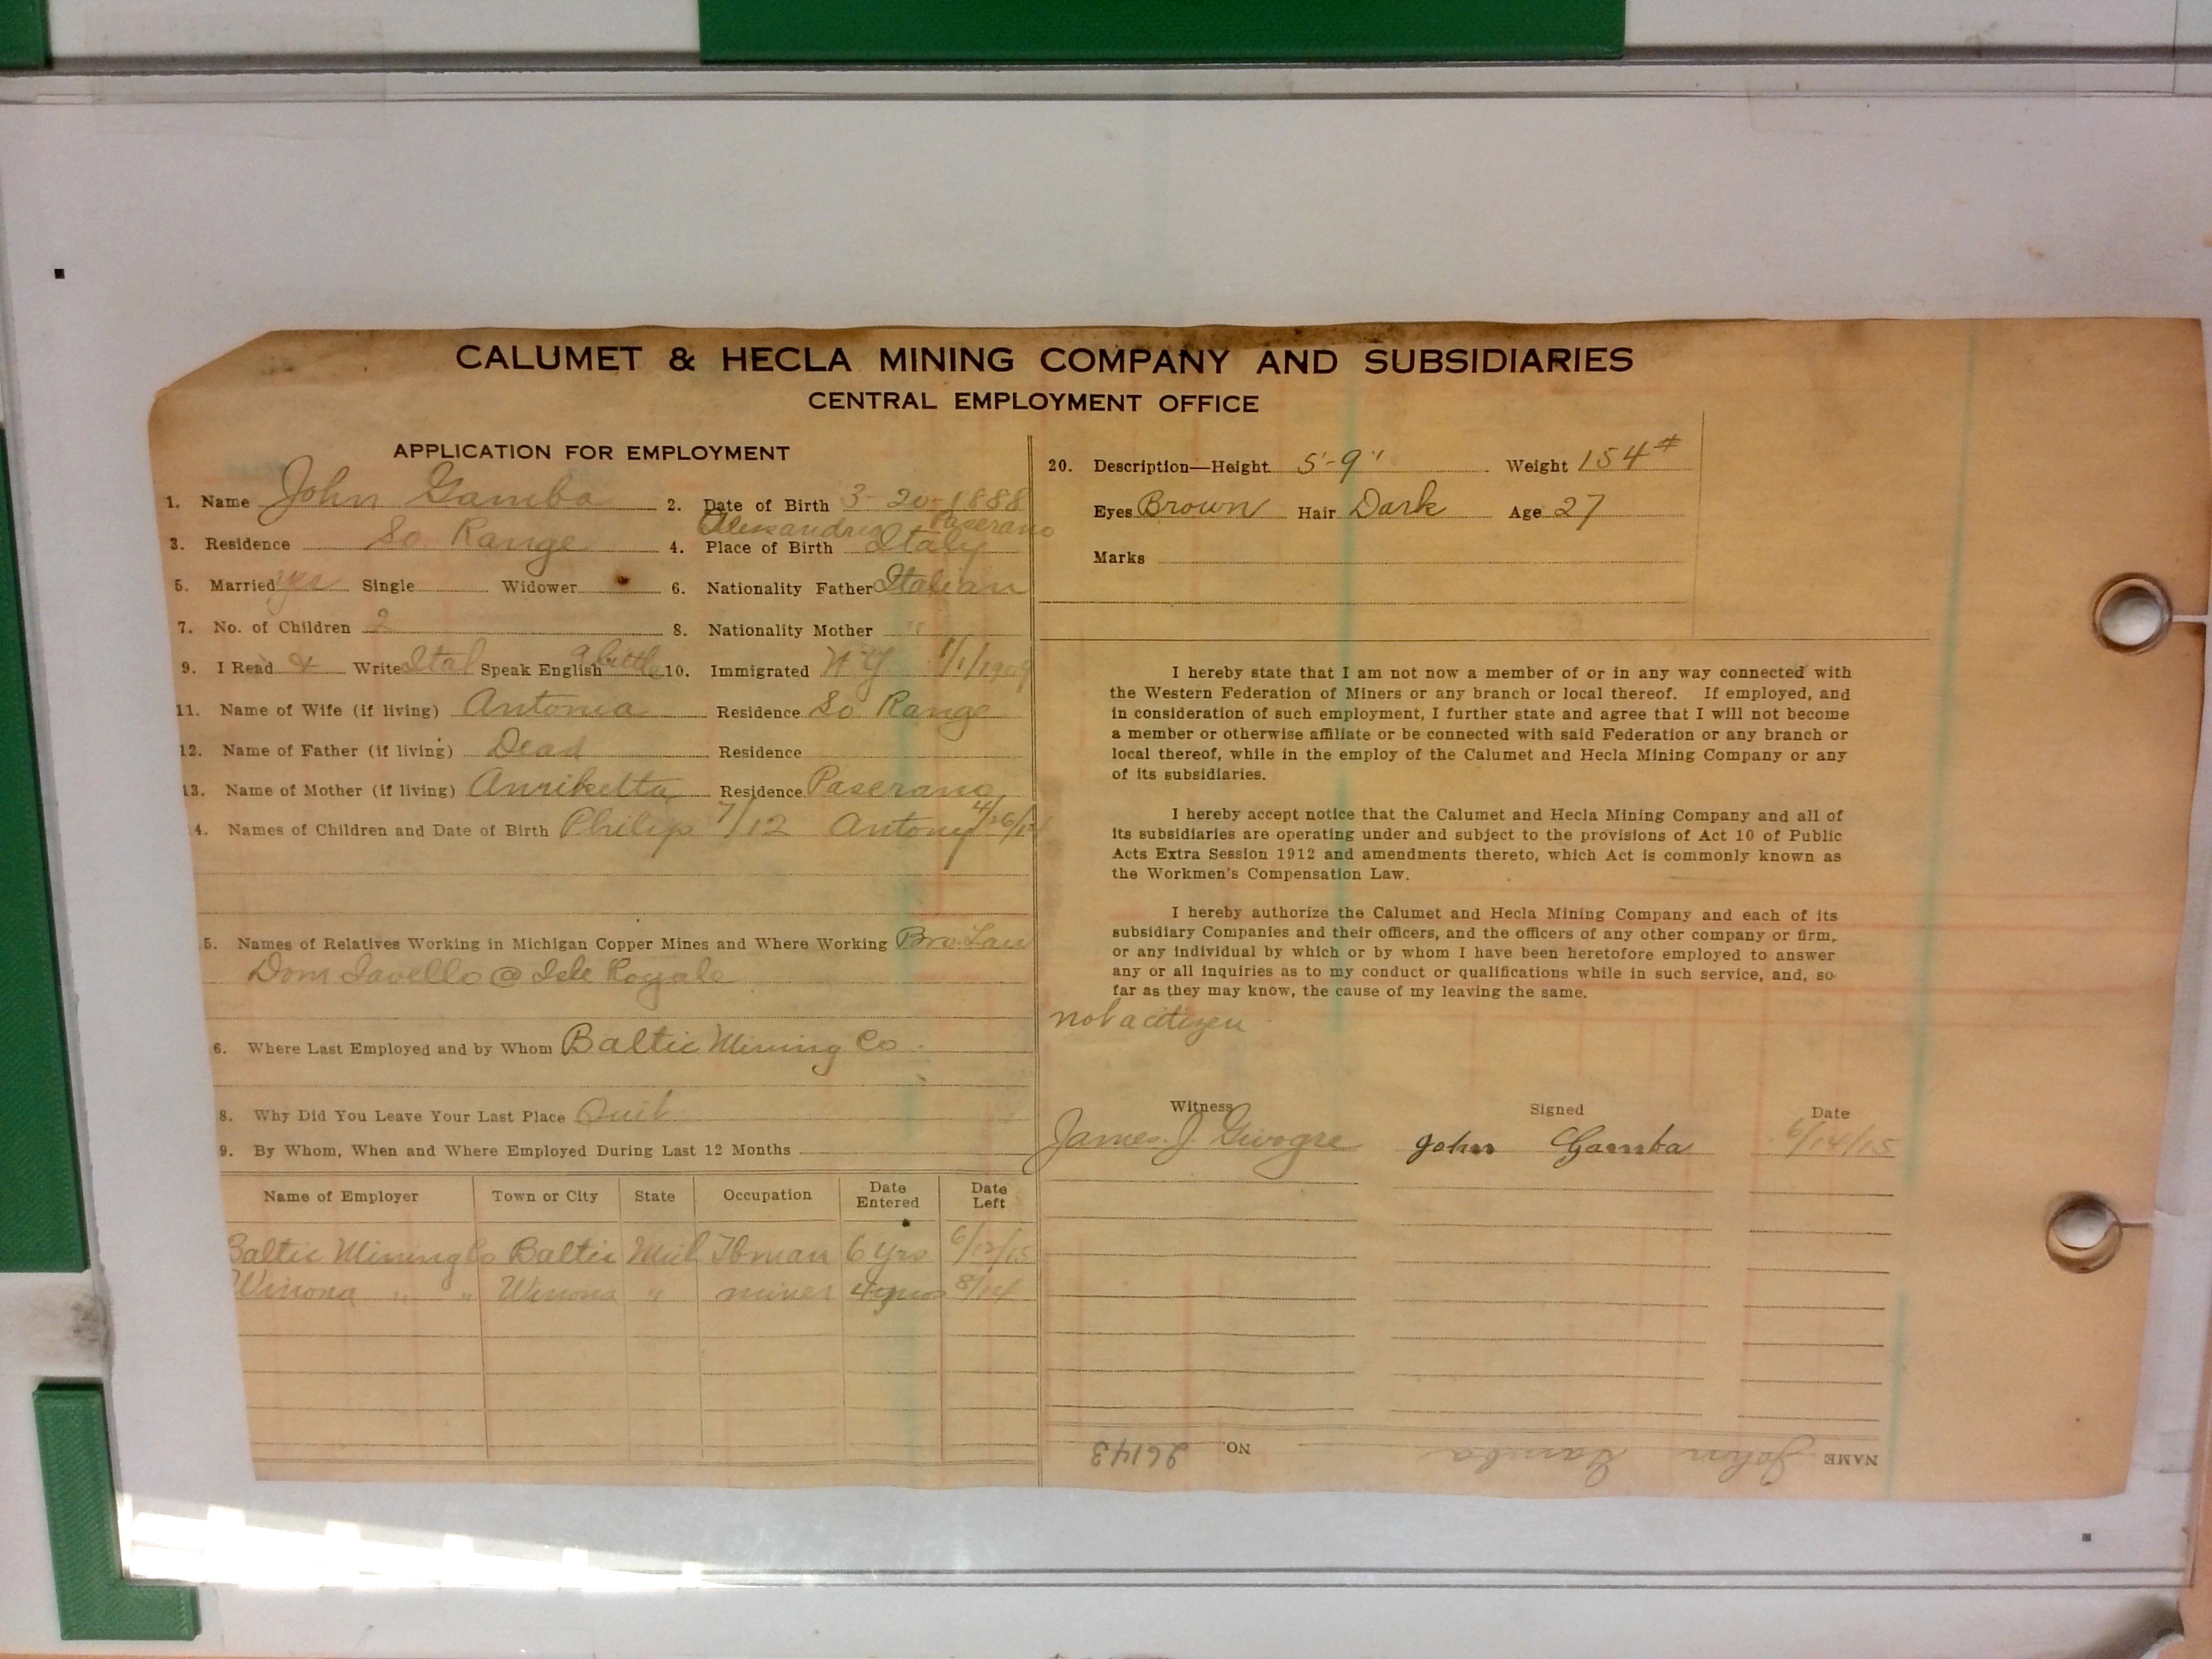 CALUMET & HECLA MINING COMPANY AND SUBSIDIARIES
CENTRAL EMPLOYMENT OFFICE
APPLICATION FOR EMPLOYMENT
1. Name John Gamba 2. Date of Birth 3-20-1888
Alessandria Paserano
3. Residence So Range 4. Place of Birth Italy
5. Married yes Single Widower 6. Nationality Father Italian
7. No. of Children 2 8. Nationality Mother "
9. I Read & Write Ital Speak English a little 10. Immigrated N Y 1/1/1909
11. Name of Wife (if living) Antonia Residence So Range
12. Name of Father (if living) Dead Residence
13. Name of Mother (if living) Anriketta Residence Paserano
4. Names of Children and Date of Birth Philip 7/12 Antony 4/26/
5. Names of Relatives Working in Michigan Copper Mines and Where Working Bro Law
Dom Savello @ Isle Royale
6. Where Last Employed and by Whom Baltic Mining Co.
8. Why Did You Leave Your Last Place Quit
9. By Whom, When and Where Employed During Last 12 Months
Name of Employer Town or City State Occupation Date Entered Date Left
Baltic Mining Co Baltic Mich Tbman 6 yrs 6/12/15
Winona " " Winona " miner 4 mos 8/14
20. Description—Height 5'-9" Weight 154#
Eyes Brown Hair Dark Age 27
Marks
I hereby state that I am not now a member of or in any way connected with
the Western Federation of Miners or any branch or local thereof. If employed, and
in consideration of such employment, I further state and agree that I will not become
a member or otherwise affiliate or be connected with said Federation or any branch or
local thereof, while in the employ of the Calumet and Hecla Mining Company or any
of its subsidiaries.
I hereby accept notice that the Calumet and Hecla Mining Company and all of
its subsidiaries are operating under and subject to the provisions of Act 10 of Public
Acts Extra Session 1912 and amendments thereto, which Act is commonly known as
the Workmen's Compensation Law.
I hereby authorize the Calumet and Hecla Mining Company and each of its
subsidiary Companies and their officers, and the officers of any other company or firm,
or any individual by which or by whom I have been heretofore employed to answer
any or all inquiries as to my conduct or qualifications while in such service, and, so
far as they may know, the cause of my leaving the same.
not a citizen
Witness Signed Date
James J. Givogre John Gamba 6/14/15
NAME John Gamba NO. 26143